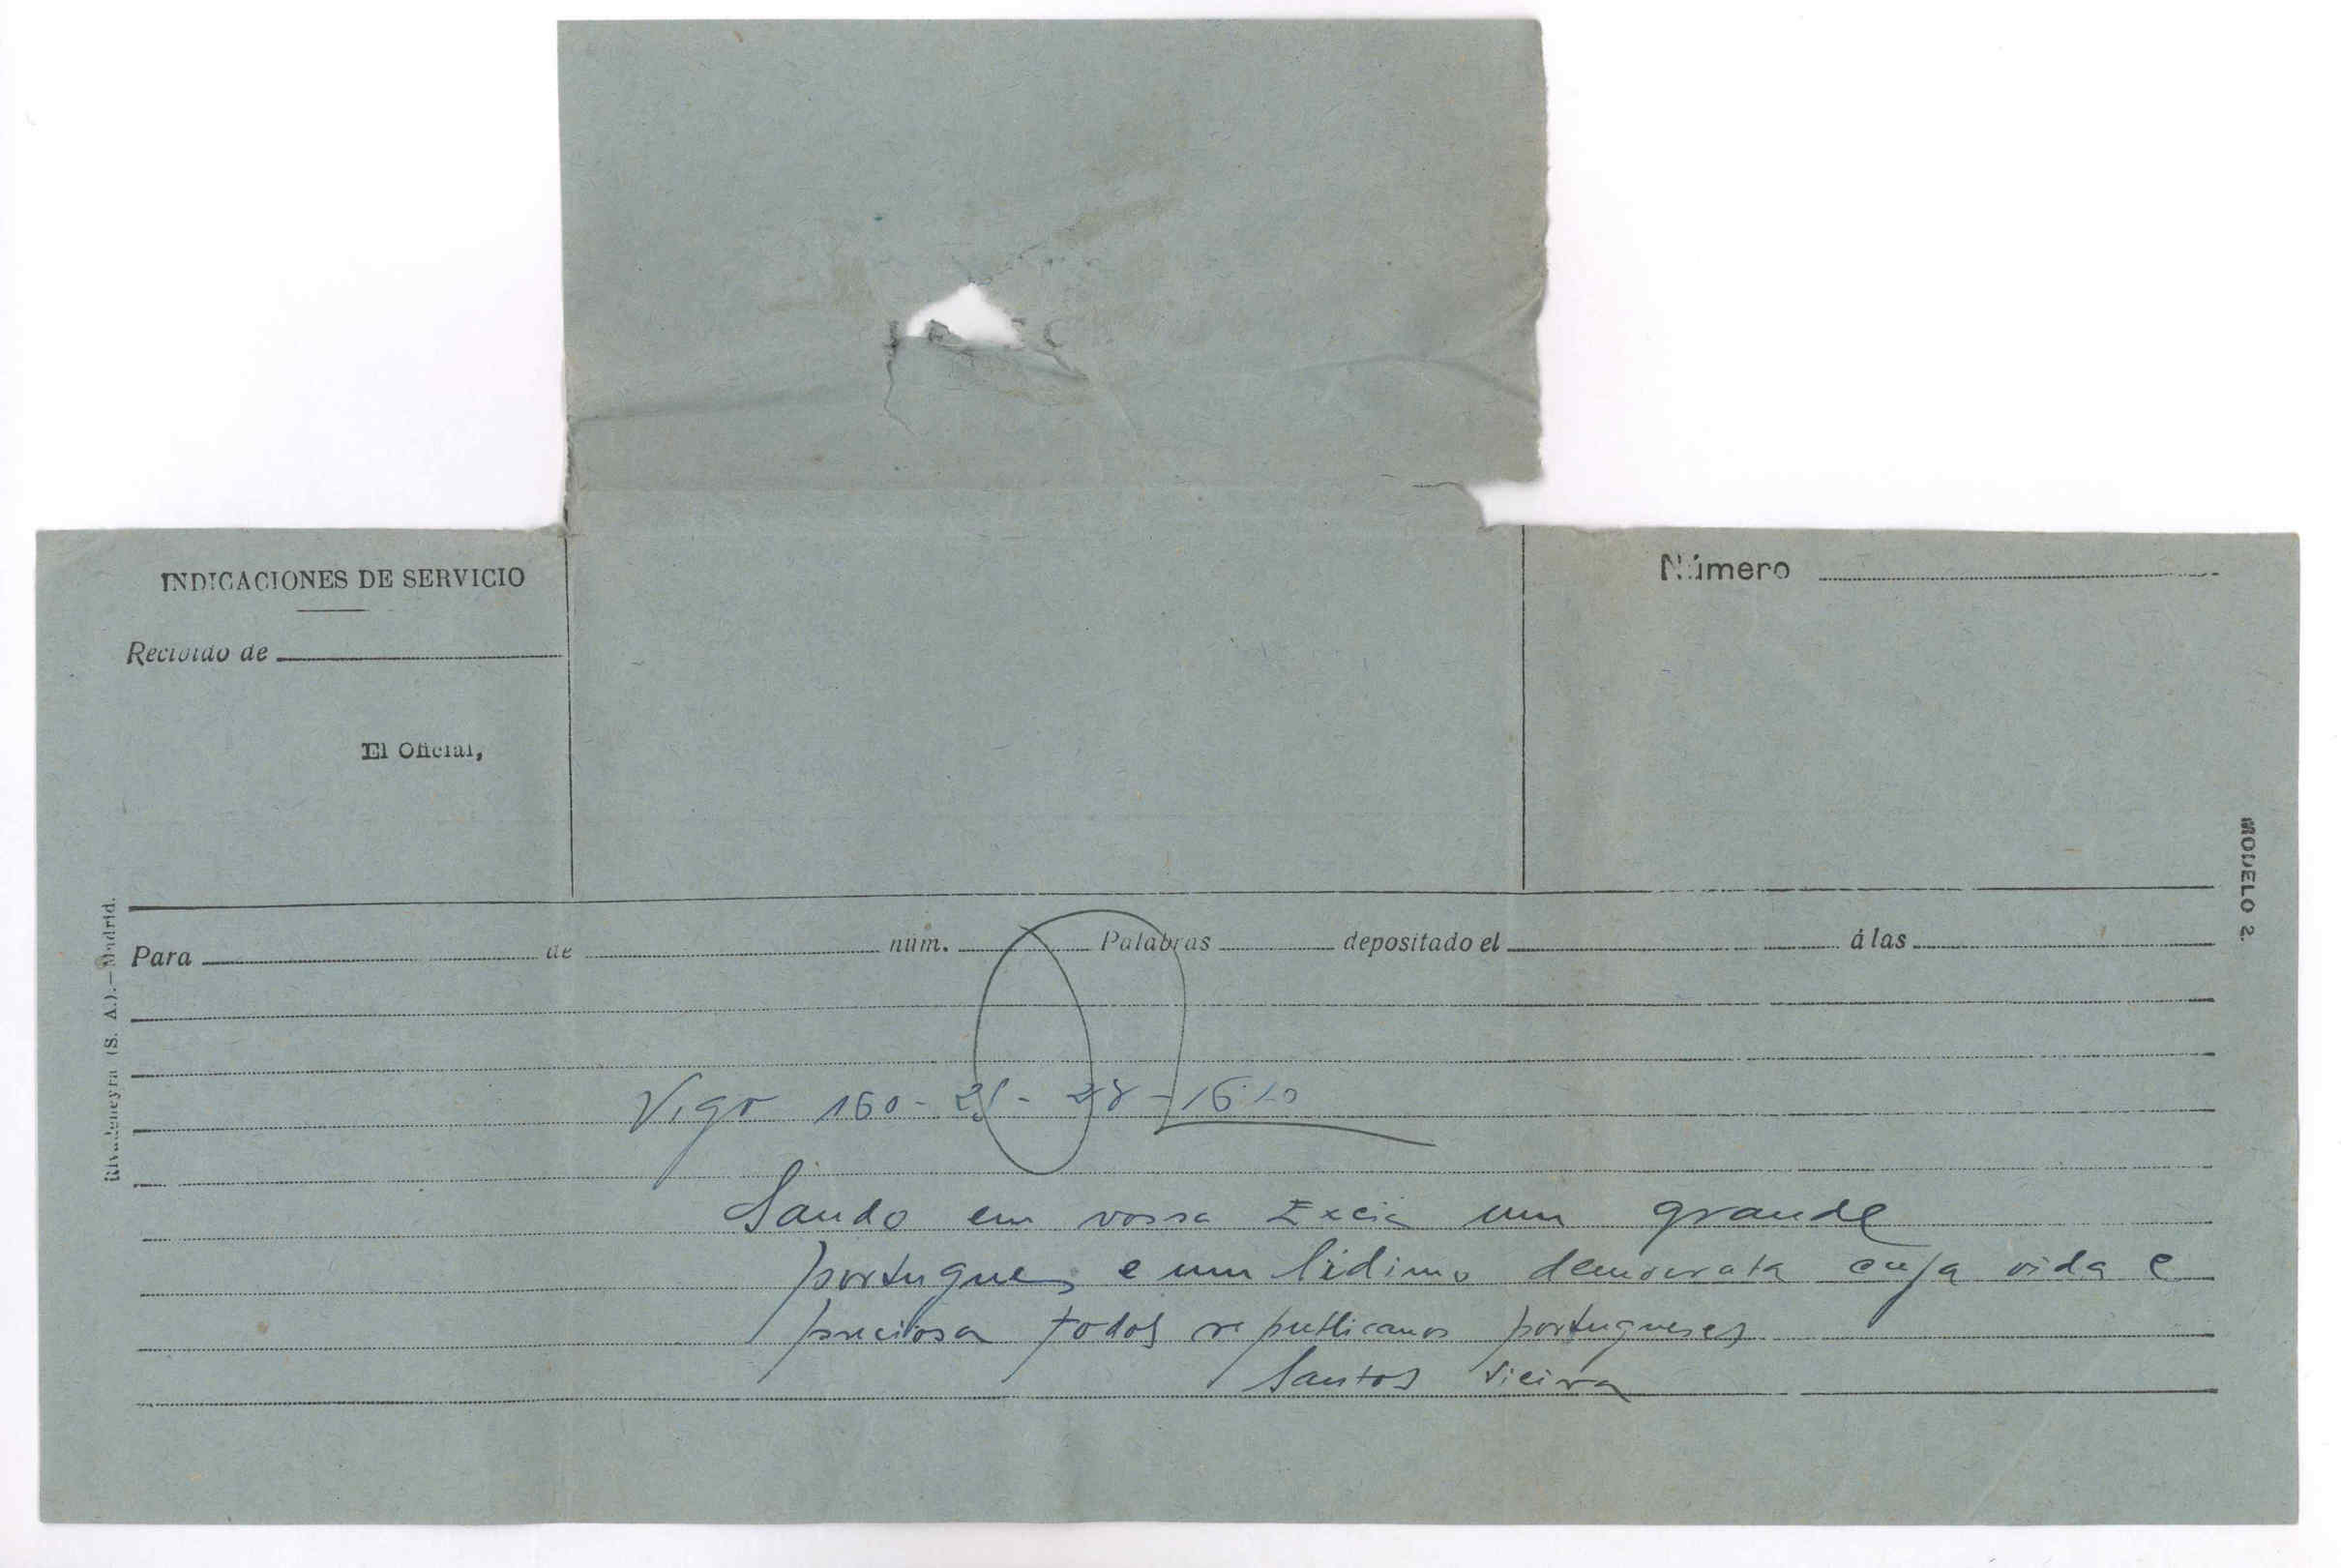 INDICACIONES DE SERVICIO
Recibido de
El Oficial,
Número
MODELO 2.
Rivadeneyra (S. A.).—Madrid.
Para de núm. Palabras depositado el á las
Vigo 160 - 21 - 28 - 16'10
Saudo em vossa Excia um grande
portugues e um lidimo democrata cuja vida e
preciosa todos republicanos portugueses
Santos Vieira